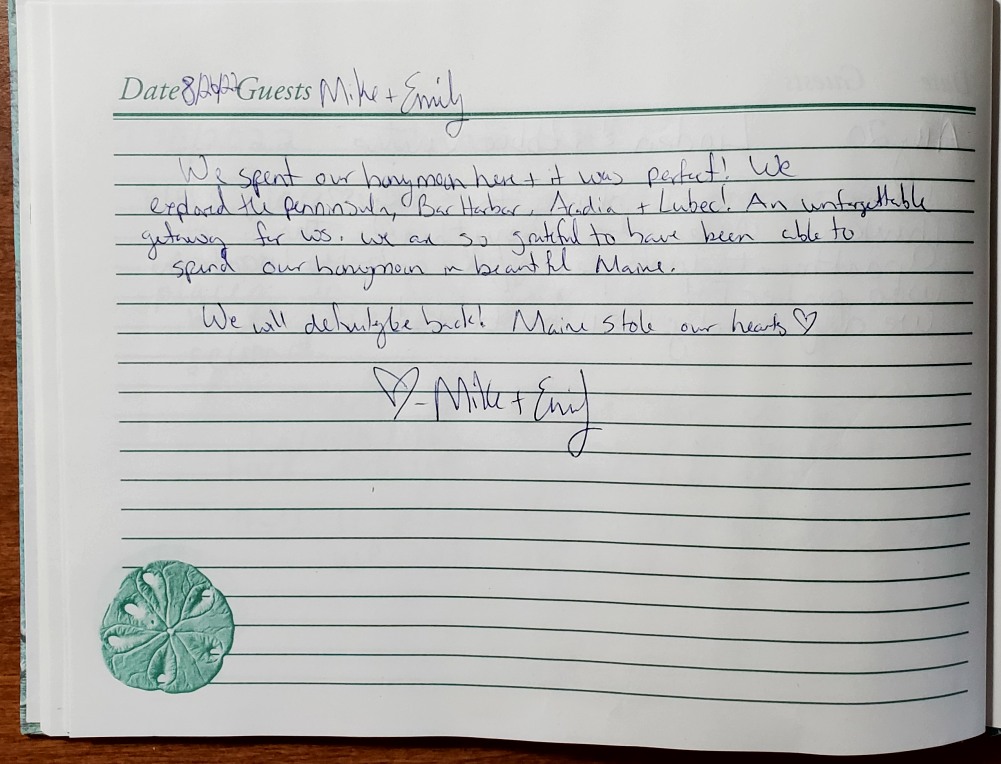 Date 8/26/22 Guests Mike + Emily
We spent our honeymoon here + it was perfect! We
explored the penninsula, Bar Harbor, Acadia + Lubec! An unforgettable
getaway for us. We are so grateful to have been able to
spend our honeymoon in beautiful Maine.
We will definitely be back! Maine stole our hearts ♡
♡ - Mike + Emily